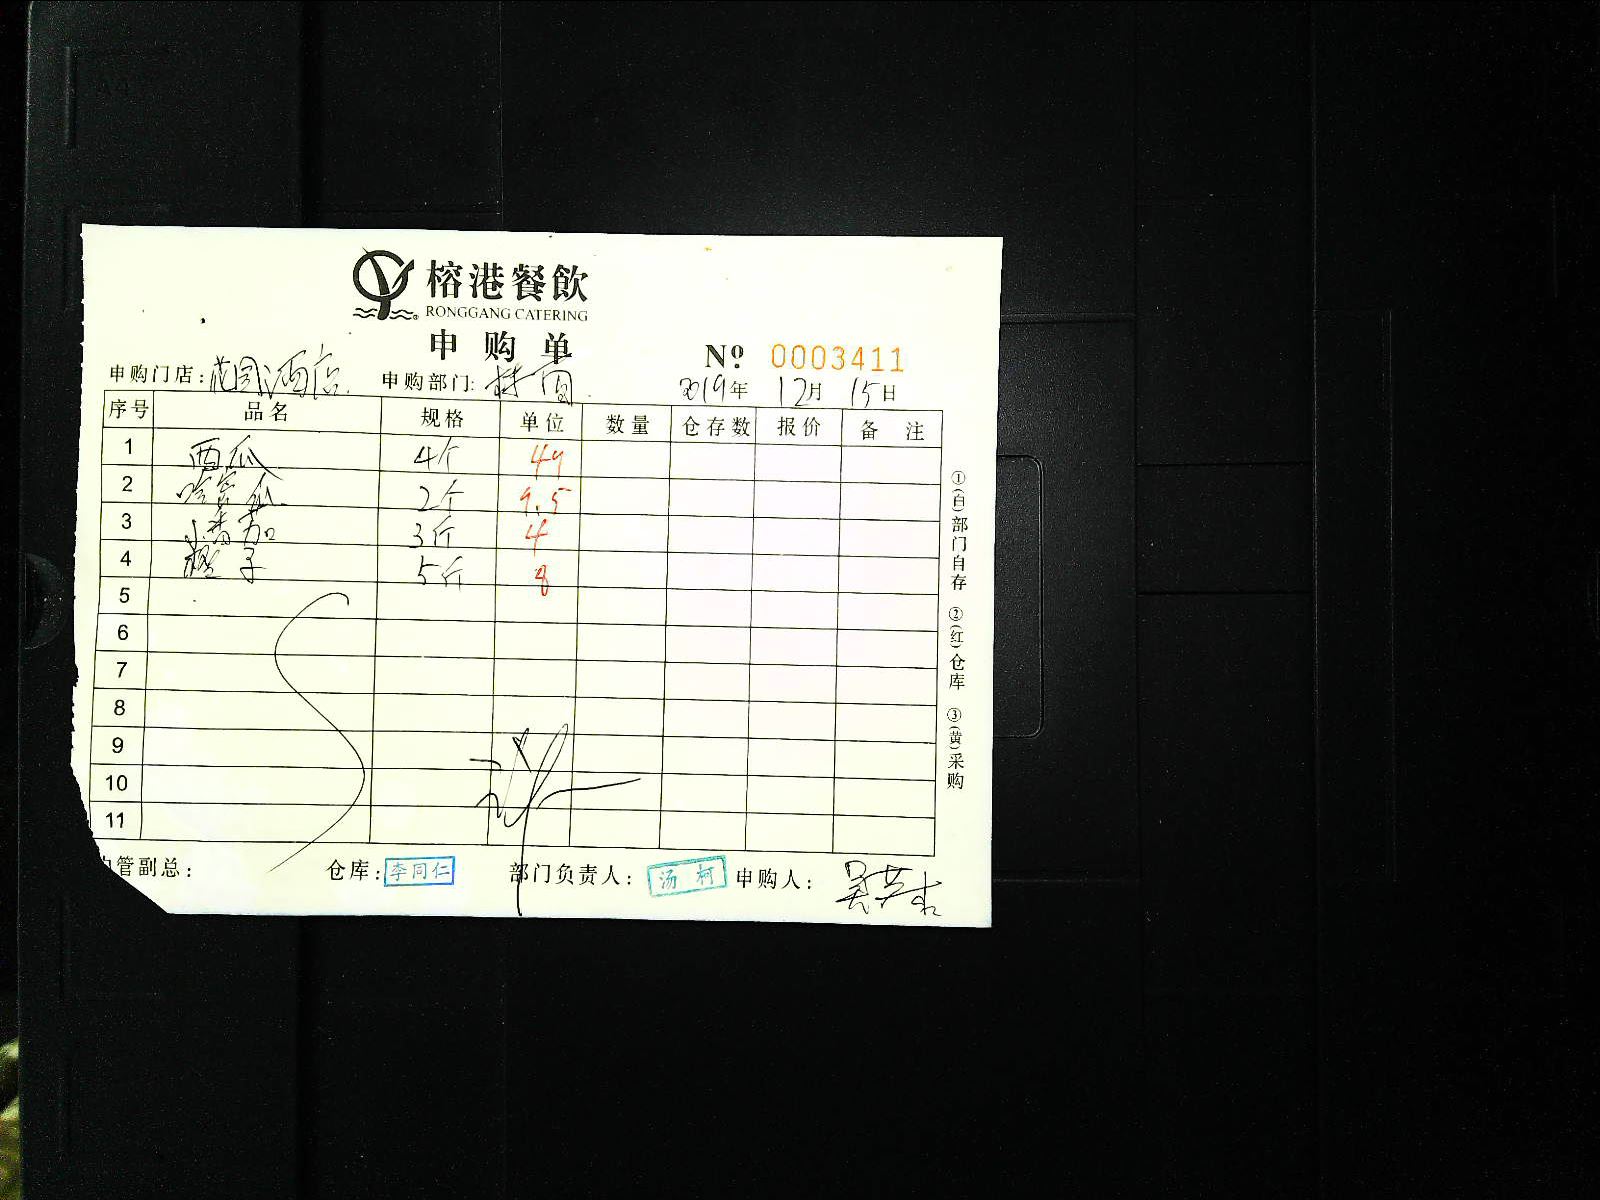 榕港餐飲
RONGGANG CATERING
申购单
№ 0003411
申购门店：花园酒店 申购部门： 2019年 12月 15日
序号 品名 规格 单位 数量 仓存数 报价 备注
1 西瓜 4个 49
2 哈密瓜 2个 9.5
3 番茄 3斤 4
4 橙子 5斤 8
5
6
7
8
9
10
11
管副总： 仓库：李同仁 部门负责人：汤柯 申购人：
①(白)部门自存 ②(红)仓库 ③(黄)采购